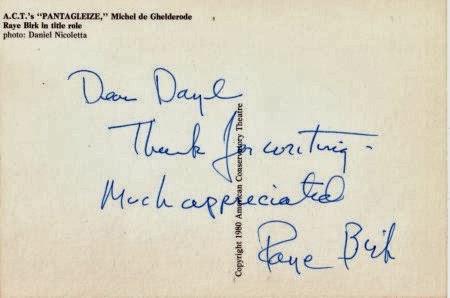 A.C.T.'s "PANTAGLEIZE," Michel de Ghelderode
Raye Birk in title role
photo: Daniel Nicoletta
Dear Dayle
Thank for writing -
Much appreciated
Raye Birk
Copyright 1980 American Conservatory Theatre